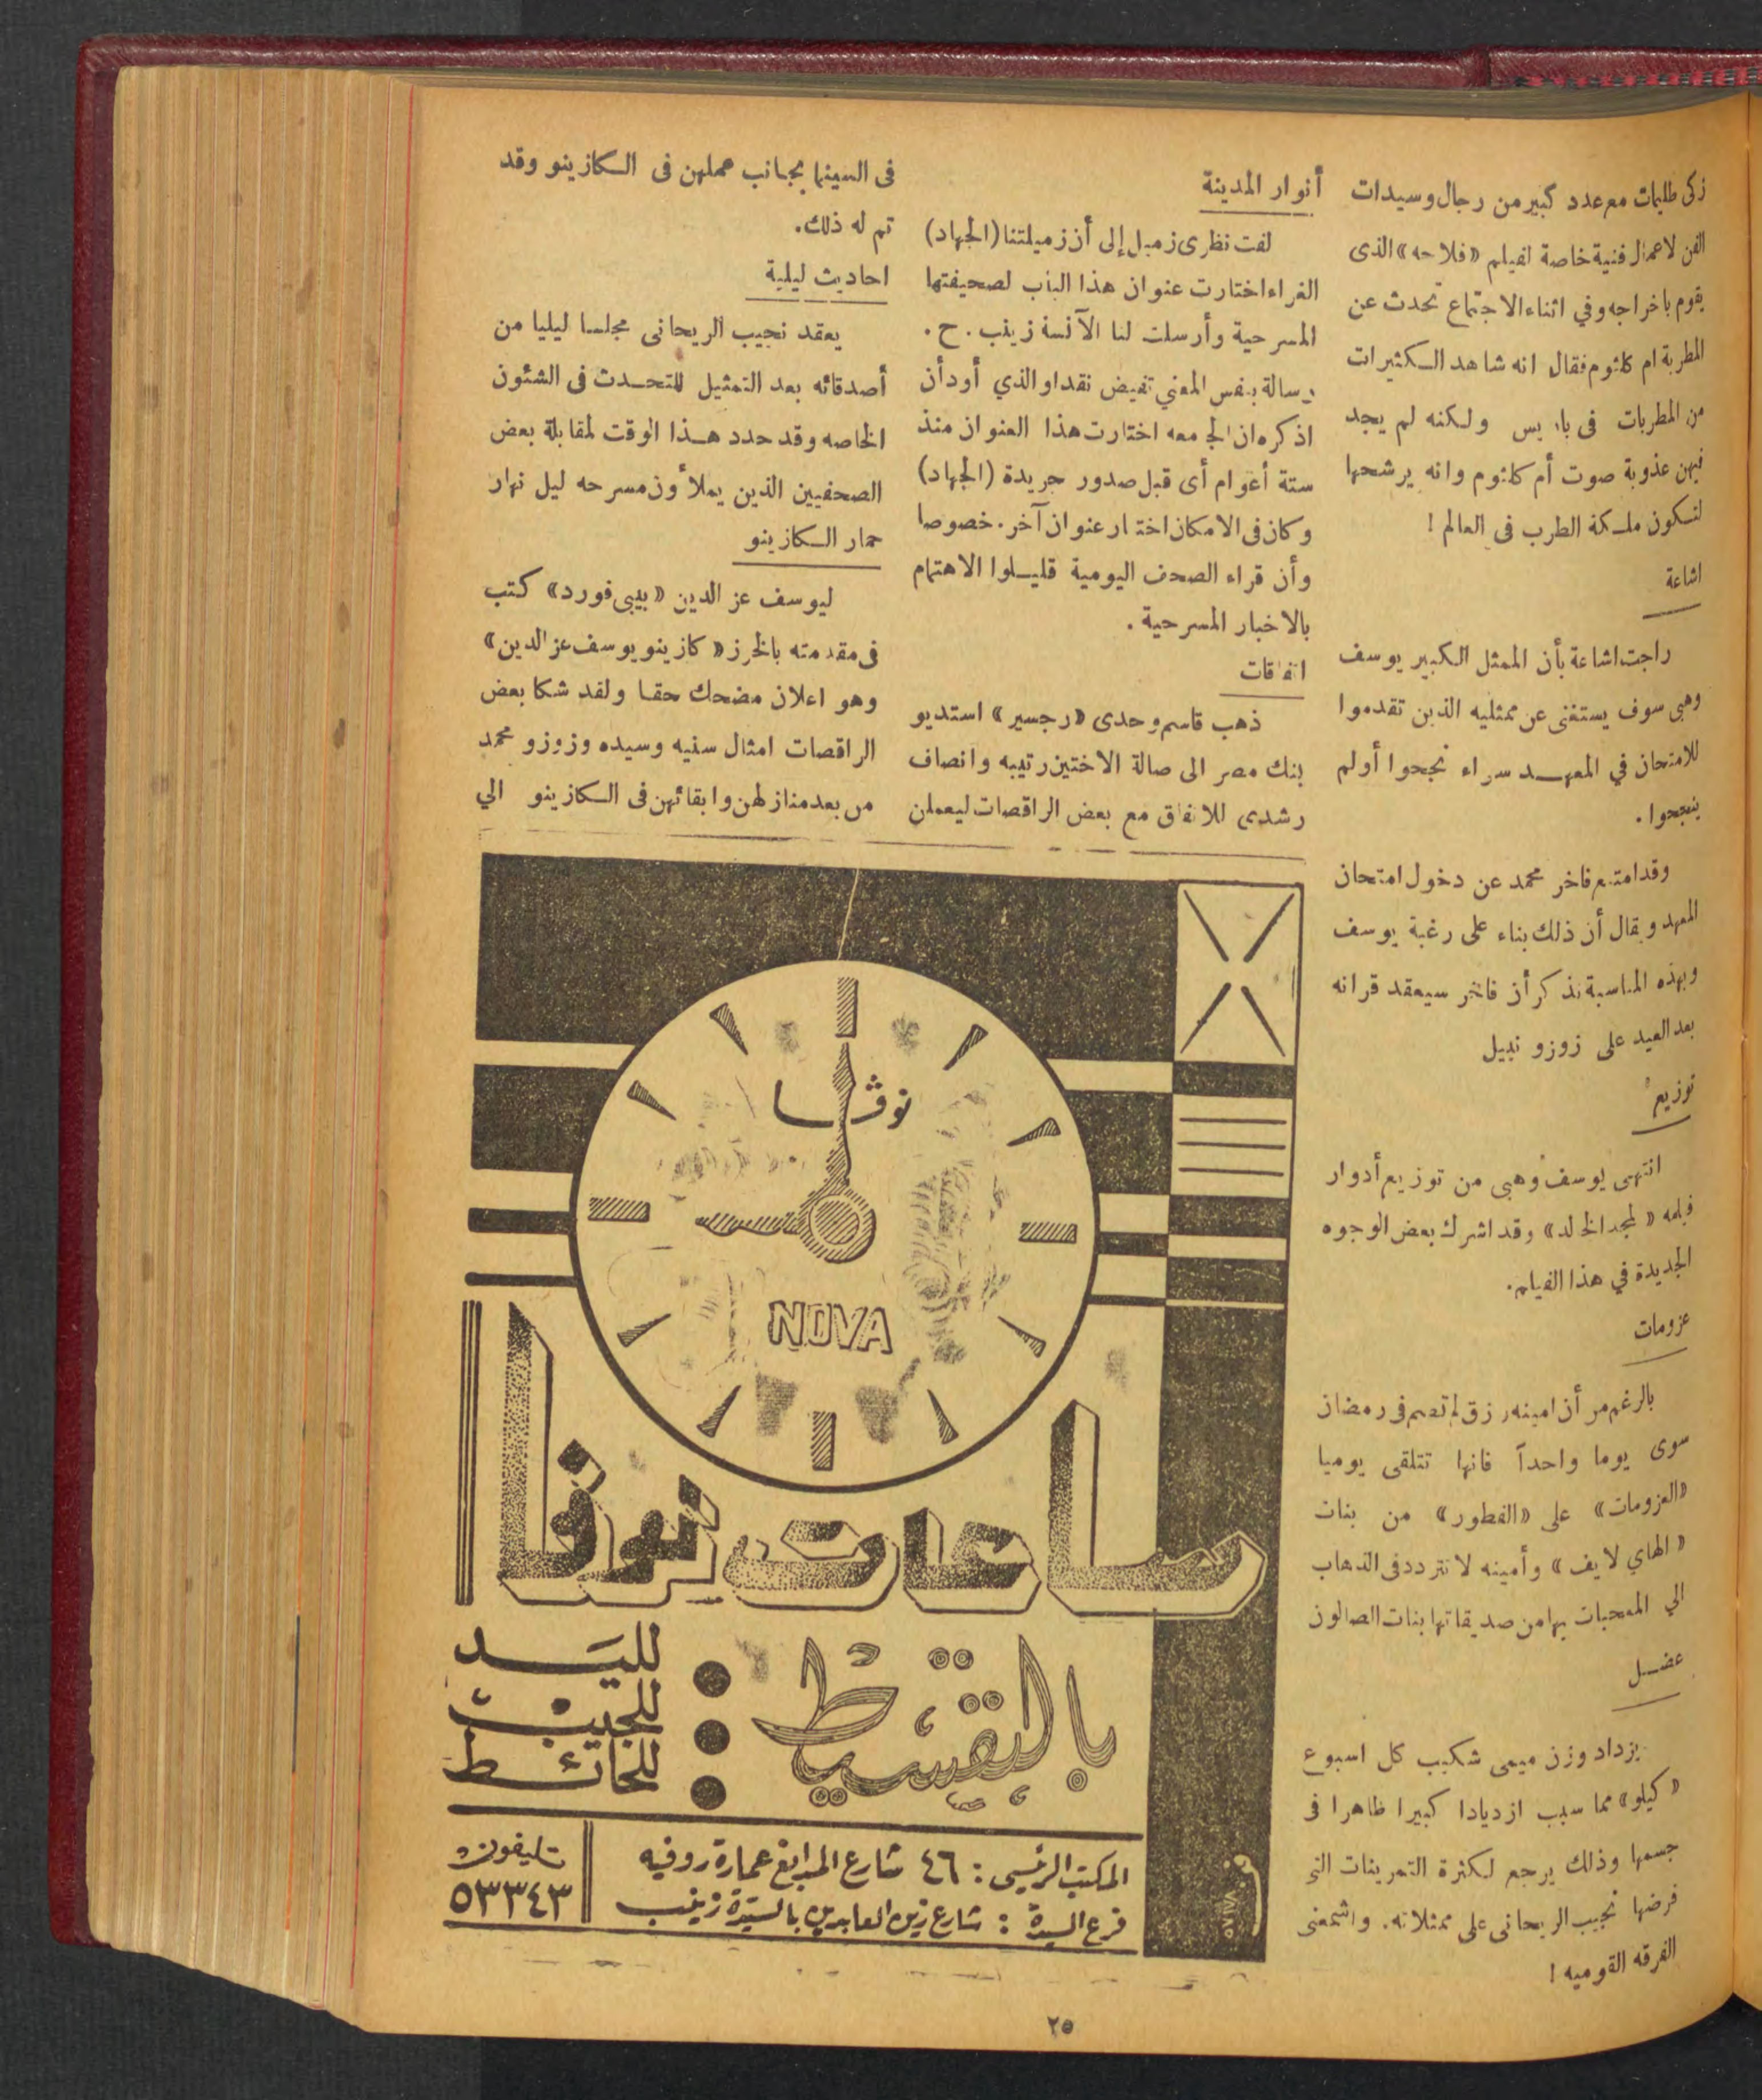 زكى طليمات مع عدد كبير من رجال وسيدات
الفن لاعمال فنية خاصة لفيلم «فلاحه» الذى
يقوم باخراجه وفي اثناء الاجتماع تحدث عن
المطربة ام كلثوم فقال انه شاهد الكثيرات
من المطربات فى باريس ولكنه لم يجد
فيهن عذوبة صوت أم كلثوم وانه يرشحها
لتكون ملكة الطرب فى العالم !
اشاعة
راجت اشاعة بأن الممثل الكبير يوسف
وهبى سوف يستغنى عن ممثليه الذين تقدموا
للامتحان في المعهد سواء نجحوا أو لم
ينجحوا .
وقد امتنع فاخر محمد عن دخول امتحان
المعهد ويقال أن ذلك بناء على رغبة يوسف
وبهذه المناسبة نذكر أن فاخر سيعقد قرانه
بعد العيد على زوزو نبيل
توزيع
انتهى يوسف وهبى من توزيع أدوار
فيلمه « المجد الخالد» وقد اشرك بعض الوجوه
الجديدة في هذا الفيلم .
عزومات
بالرغم من أن امينه رزق لم تصم فى رمضان
سوى يوما واحدآ فانها تتلقى يوميا
«العزومات» على «الفطور» من بنات
« الهاي لايف » وأمينه لا تتردد فى الذهاب
الي المعجبات بها من صديقاتها بنات الصالون
عضل
يزداد وزن ميمى شكيب كل اسبوع
« كيلو » مما سبب ازديادا كبيرا ظاهرا فى
جسمها وذلك يرجع لكثرة التمرينات التى
فرضها نجيب الريحانى على ممثلاته . واشمعنى
الفرقه القوميه !
أنوار المدينة
لفت نظرى زميل إلى أن زميلتنا (الجهاد)
الغراء اختارت عنوان هذا الباب لصحيفتها
المسرحية وأرسلت لنا الآنسة زينب . ح .
رسالة بنفس المعني تفيض نقدا والذي أود أن
اذكره ان الجامعه اختارت هذا العنوان منذ
ستة أعوام أى قبل صدور جريدة (الجهاد)
وكان فى الامكان اختار عنوان آخر . خصوصا
وأن قراء الصحف اليومية قليلوا الاهتمام
بالاخبار المسرحية .
اتفاقات
ذهب قاسم وحدى «رجسير» استديو
بنك مصر الى صالة الاختين رتيبه وانصاف
رشدى للاتفاق مع بعض الراقصات ليعملن
فى السينما بجانب عملهن فى الكازينو وقد
تم له ذلك .
احاديث ليلية
يعقد نجيب الريحانى مجلسا ليليا من
أصدقائه بعد التمثيل للتحدث فى الشئون
الخاصه وقد حدد هذا الوقت لمقابلة بعض
الصحفيين الذين يملأون مسرحه ليل نهار
حمار الكازينو
ليوسف عز الدين «بيبى فورد» كتب
فى مقدمته بالخرز « كازينو يوسف عز الدين»
وهو اعلان مضحك حقا ولقد شكا بعض
الراقصات امثال سنيه وسيده وزوزو محمد
من بعد منازلهن وابقائهن فى الكازينو الي
نوڤا
NOVA
ساعات نوڤا
بالتقسيط
لليد
للجيب
للحائط
المكتب الرئيسى : ٤٦ شارع المدابغ عمارة روفيه
فرع السيدة : شارع زين العابدين بالسيدة زينب
تليفون
٥٣٣٤٣
٢٥